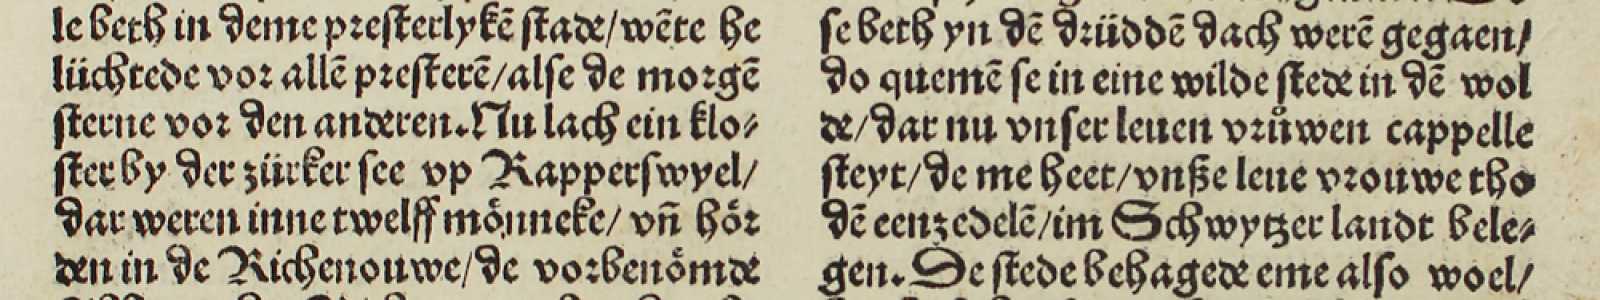 le beth in deme presterlykē stade/wēte he
lüchtede vor allē presterē/alse de morgē
sterne vor den anderen. Nu lach ein klo⸗
ster by der zürker see vp Rapperswyel/
dar weren inne twelff mönneke/ vñ hör
den in de Richenouwe/de vorbenömde
se beth yn dē drüddē dach werē gegaen/
do quemē se in eine wilde stede in dē wol
de/dar nu vnser leuen vrůwen cappelle
steyt/de me heet/vnße leue vrouwe tho
dē eenzedelē/im Schwytzer landt bele⸗
gen. De stede behagede eme also woel/